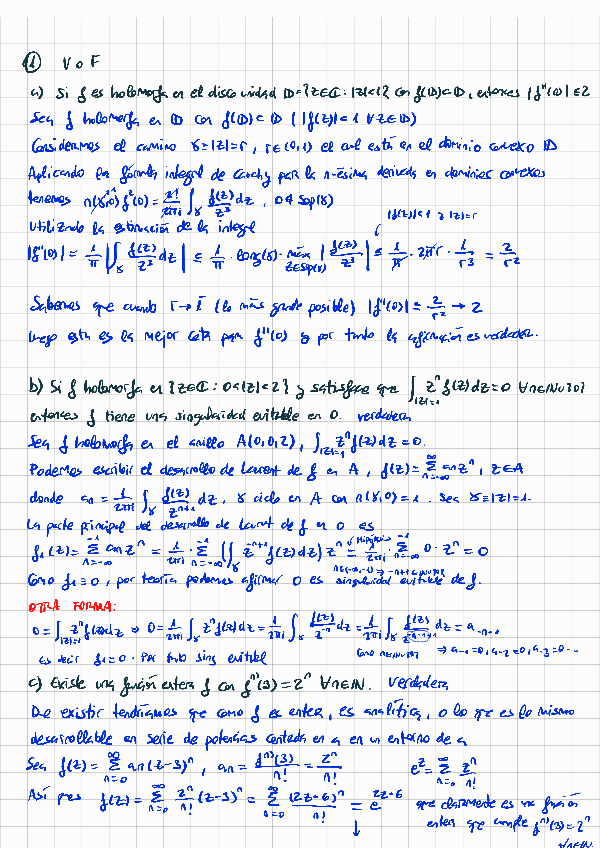 ① V o F
a) Si f es holomorfa en el disco unidad D={z∈ℂ: |z|<1} con f(D)⊂D, entonces |f''(0)|≤2
Sea f holomorfa en D con f(D)⊂D (|f(z)|<1 ∀z∈D)
Consideremos el camino γ≡|z|=r, r∈(0,1) el cual está en el dominio convexo D
Aplicando la fórmula integral de Cauchy para la n-ésima derivada en dominios convexos
tenemos n(γ,0) f²(0) = 2!/2πi ∫_γ f(z)/z³ dz, 0∉Sop(γ)
|f(z)|<1 y |z|=r
Utilizando la estimación de la integral
|f''(0)| = 1/π |∫_γ f(z)/z³ dz| ≤ 1/π · long(γ) · máx_{z∈sop(γ)} |f(z)/z³| ≤ 1/π · 2πr · 1/r³ = 2/r²
Sabemos que cuando r→1 (lo más grande posible) |f''(0)| ≤ 2/r² → 2
luego esta es la mejor cota para f''(0) y por tanto la afirmación es verdadera.
b) Si f holomorfa en {z∈ℂ: 0<|z|<2} y satisface que ∫_{|z|=1} zⁿ f(z) dz = 0 ∀n∈ℕ∪{0}
entonces f tiene una singularidad evitable en 0. verdadera
Sea f holomorfa en el anillo A(0,0,2), ∫_{|z|=1} zⁿ f(z) dz = 0.
Podemos escribir el desarrollo de Laurent de f en A, f(z) = Σ_{n=-∞}^{∞} aₙ zⁿ, z∈A
donde aₙ = 1/2πi ∫_γ f(z)/z^{n+1} dz, γ ciclo en A con n(γ,0)=1. Sea γ≡|z|=1.
La parte principal del desarrollo de Laurent de f en 0 es
f₁(z) = Σ_{n=-∞}^{-1} aₙ zⁿ = 1/2πi · Σ_{n=-∞}^{-1} (∫_γ z^{-n+1} f(z) dz) zⁿ = 1/2πi · Σ_{n=-∞}^{-1} 0 · zⁿ = 0
Hipótesis
n∈(-∞,-1) ⇒ -n+1∈ℕ∪{0}
Como f₁≡0, por teoría podemos afirmar 0 es singularidad evitable de f.
OTRA FORMA:
0 = ∫_{|z|=1} zⁿ f(z) dz ⇒ 0 = 1/2πi ∫_γ zⁿ f(z) dz = 1/2πi ∫_γ f(z)/z^{-n} dz = 1/2πi ∫_γ f(z)/z^{-n-1+1} dz = a_{-n-1}
es decir f₁≡0. Por tanto sing evitable
Como n∈ℕ∪{0} ⇒ a₋₁=0, a₋₂=0, a₋₃=0...
c) Existe una función entera f con fⁿ⁾(3)=2ⁿ ∀n∈ℕ. Verdadera
De existir tendríamos que como f es entera, es analítica, o lo que es lo mismo
desarrollable en serie de potencias centrada en a en un entorno de a
Sea f(z) = Σ_{n=0}^{∞} aₙ(z-3)ⁿ, aₙ = fⁿ⁾(3)/n! = 2ⁿ/n!
e^z = Σ_{n=0}^{∞} zⁿ/n!
Así pues f(z) = Σ_{n=0}^{∞} 2ⁿ/n! (z-3)ⁿ = Σ_{n=0}^{∞} (2z-6)ⁿ/n! = e^{2z-6}
que claramente es una función
entera que cumple fⁿ⁾(3)=2ⁿ
∀n∈ℕ.